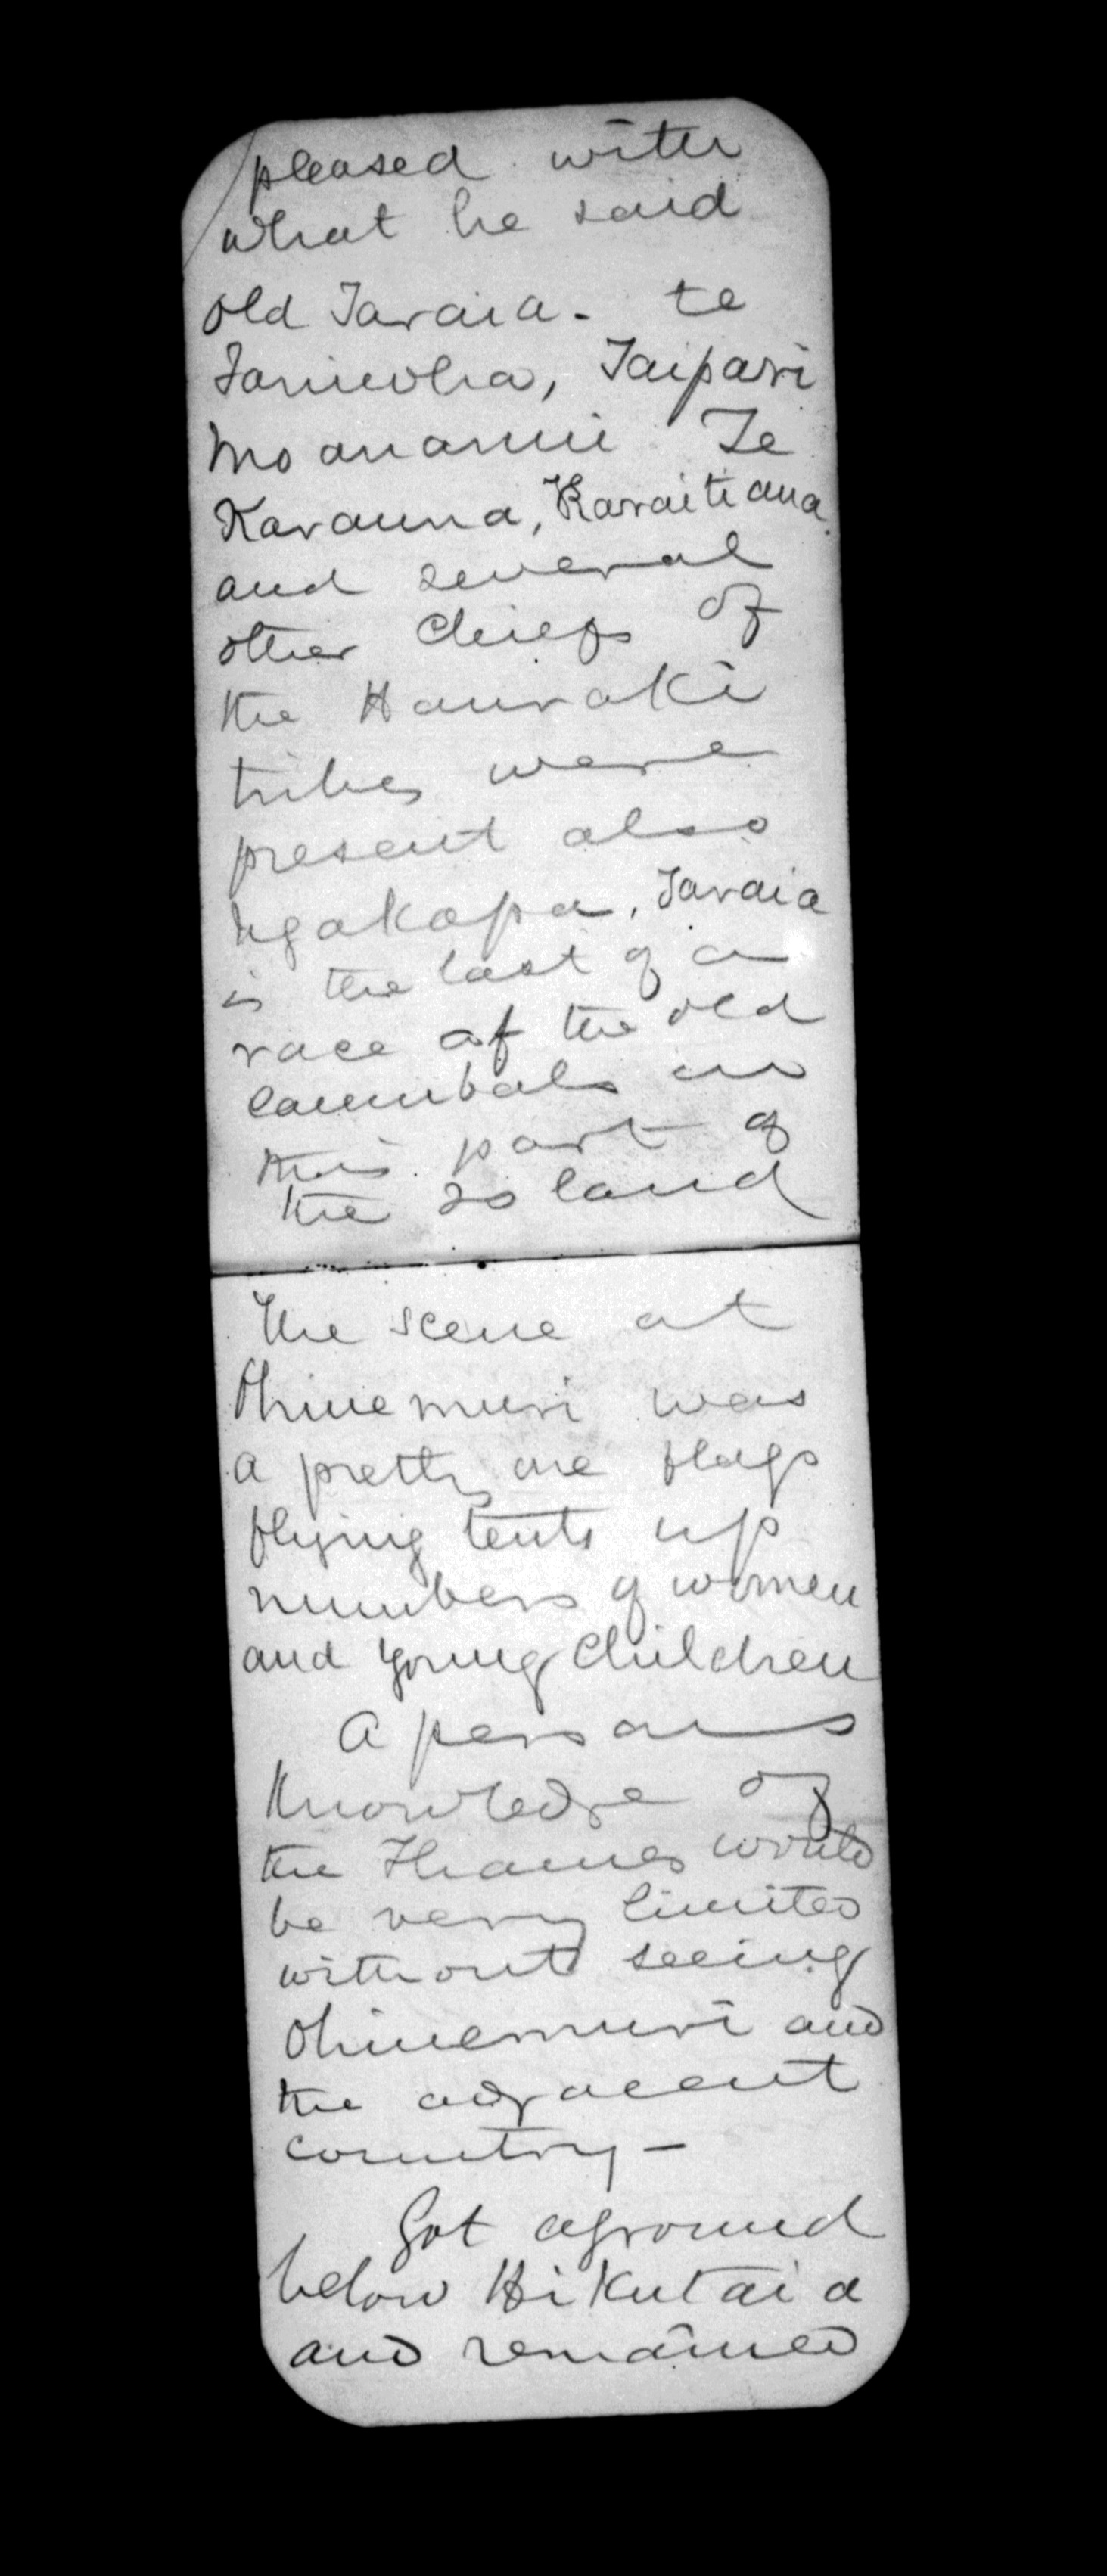 pleased with
what he said
old Taraia - te
Taniwha, Taipari
Moananui Te
Karauna, Karaitiana
and several
other Chiefs of
the Hauraki
tribes were
present also
Ngakapa, Taraia
is the last of a
race of the old
cannibals in
this part of
the island
The scene at
Ohinemuri was
a pretty one flags
flying tents up
numbers of women
and young Children
A persons
knowledge of
the Thames would
be very limited
without seeing
Ohinemuri and
the adjacent
country -
Got aground
below Hikutaia
and remained